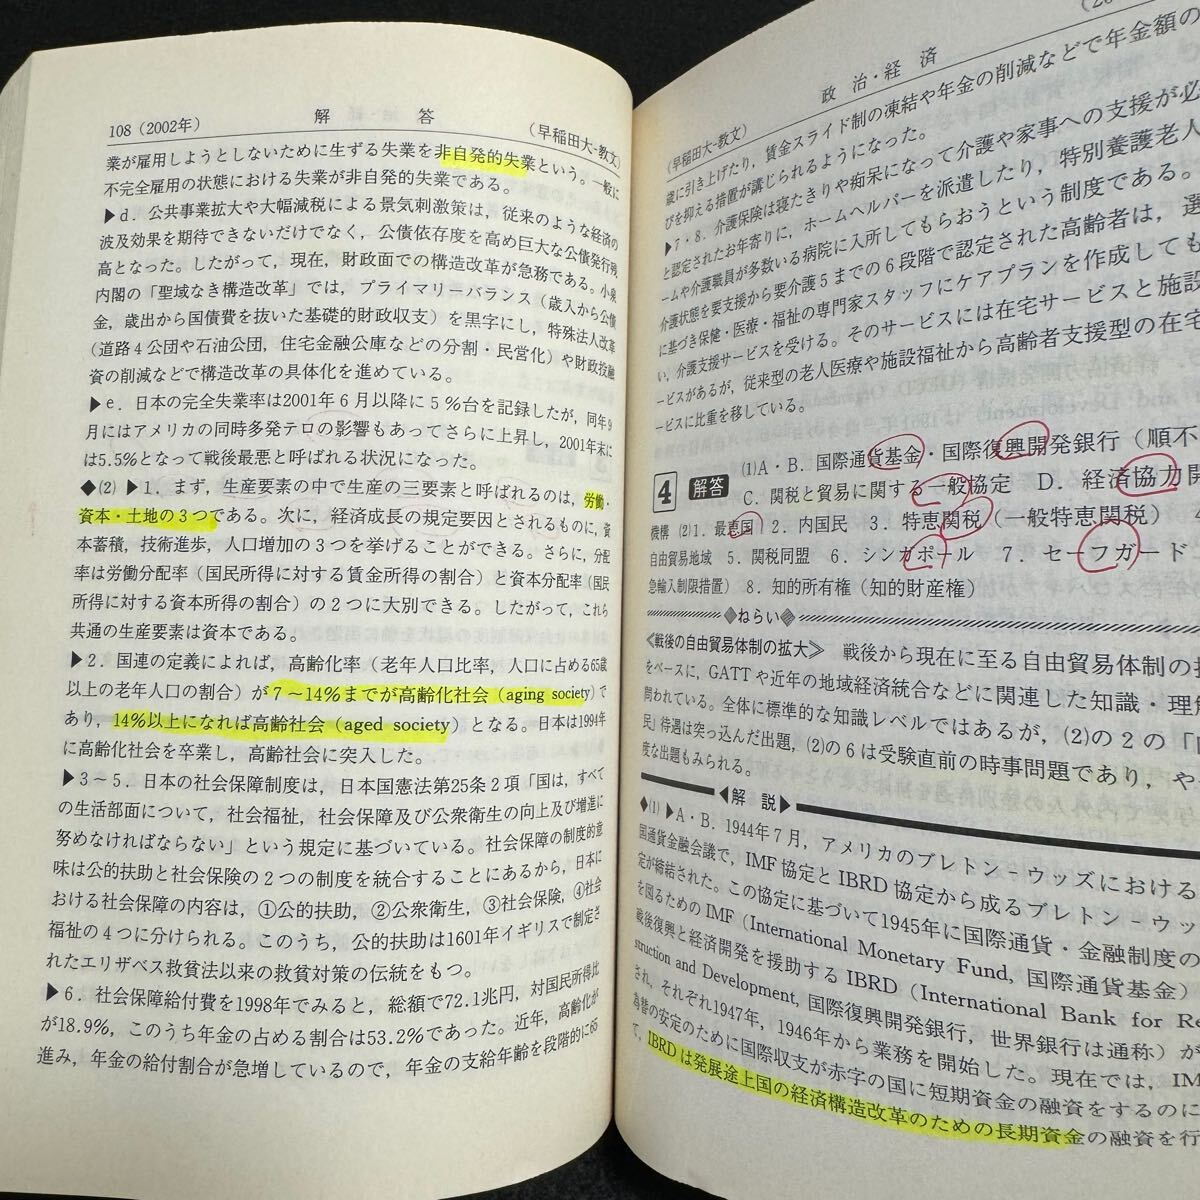 108（2002年） 解 答 （早稲田大-教文）
業が雇用しようとしないために生ずる失業を非自発的失業という。一般に
不完全雇用の状態における失業が非自発的失業である。
▶d．公共事業拡大や大幅減税による景気刺激策は，従来のような経済の
波及効果を期待できないだけでなく，公債依存度を高め巨大な公債発行残
高となった。したがって，現在，財政面での構造改革が急務である。小泉
内閣の「聖域なき構造改革」では，プライマリーバランス（歳入から公債
金，歳出から国債費を抜いた基礎的財政収支）を黒字にし，特殊法人改革
（道路4公団や石油公団，住宅金融公庫などの分割・民営化）や財政投融
資の削減などで構造改革の具体化を進めている。
▶e．日本の完全失業率は2001年6月以降に5％台を記録したが，同年9
月にはアメリカの同時多発テロの影響もあってさらに上昇し，2001年末に
は5.5％となって戦後最悪と呼ばれる状況になった。
◆(2) ▶1．まず，生産要素の中で生産の三要素と呼ばれるのは，労働・
資本・土地の3つである。次に，経済成長の規定要因とされるものに，資
本蓄積，技術進歩，人口増加の3つを挙げることができる。さらに，分配
率は労働分配率（国民所得に対する賃金所得の割合）と資本分配率（国民
所得に対する資本所得の割合）の2つに大別できる。したがって，これら
共通の生産要素は資本である。
▶2．国連の定義によれば，高齢化率（老年人口比率，人口に占める65歳
以上の老年人口の割合）が7～14％までが高齢化社会（aging society）で
あり，14％以上になれば高齢社会（aged society）となる。日本は1994年
に高齢化社会を卒業し，高齢社会に突入した。
▶3～5．日本の社会保障制度は，日本国憲法第25条2項「国は，すべて
の生活部面について，社会福祉，社会保障及び公衆衛生の向上及び増進に
努めなければならない」という規定に基づいている。社会保障の制度的意
味は公的扶助と社会保険の2つの制度を統合することにあるから，日本に
おける社会保障の内容は，①公的扶助，②公衆衛生，③社会保険，④社会
福祉の4つに分けられる。このうち，公的扶助は1601年イギリスで制定さ
れたエリザベス救貧法以来の救貧対策の伝統をもつ。
▶6．社会保障給付費を1998年でみると，総額で72.1兆円，対国民所得比
が18.9％，このうち年金の占める割合は53.2％であった。近年，高齢化が
進み，年金の給付割合が急増しているので，年金の支給年齢を段階的に65
（早稲田大-教文） 政 治・経 済
歳に引き上げたり，賃金スライド制の凍結や年金の削減などで年金額の
びを抑える措置が講じられるようになった。
▶7・8．介護保険は寝たきりや痴呆になって介護や家事への支援が必
と認定されたお年寄りに，ホームヘルパーを派遣したり，特別養護老人
ームや介護職員が多数いる病院に入所してもらおうという制度である。
介護状態を要支援から要介護5までの6段階で認定された高齢者は，選
に基づき保健・医療・福祉の専門家スタッフにケアプランを作成しても
い，介護支援サービスを受ける。そのサービスには在宅サービスと施設
ービスがあるが，従来型の老人医療や施設福祉から高齢者支援型の在宅
ービスに比重を移している。
4 解答 (1)A・B．国際通貨基金・国際復興開発銀行（順不
C．関税と貿易に関する一般協定 D．経済協力開
機構 (2)1．最恵国 2．内国民 3．特恵関税（一般特恵関税） 4
自由貿易地域 5．関税同盟 6．シンガポール 7．セーフガード
急輸入制限措置） 8．知的所有権（知的財産権）
◆ねらい◆
≪戦後の自由貿易体制の拡大≫ 戦後から現在に至る自由貿易体制の拡
をベースに，GATTや近年の地域経済統合などに関連した知識・理解
問われている。全体に標準的な知識レベルではあるが，(2)の2の「内
民」待遇は突っ込んだ出題，(2)の6は受験直前の時事問題であり，や
度な出題もみられる。
◀解 説▶
◆(1) ▶A・B．1944年7月，アメリカのブレトン-ウッズにおける
国通貨金融会議で，IMF協定とIBRD協定から成るブレトン-ウッ
定が締結された。この協定に基づいて1945年に国際通貨・金融制度の
を図るためのIMF（International Monetary Fund, 国際通貨基金）
戦後復興と経済開発を援助するIBRD（International Bank for Re
struction and Development, 国際復興開発銀行，世界銀行は通称）が
され，それぞれ1947年，1946年から業務を開始した。現在では，IM
為替の安定のために国際収支が赤字の国に短期資金の融資をするのに
て，IBRDは発展途上国の経済構造改革のための長期資金の融資を行